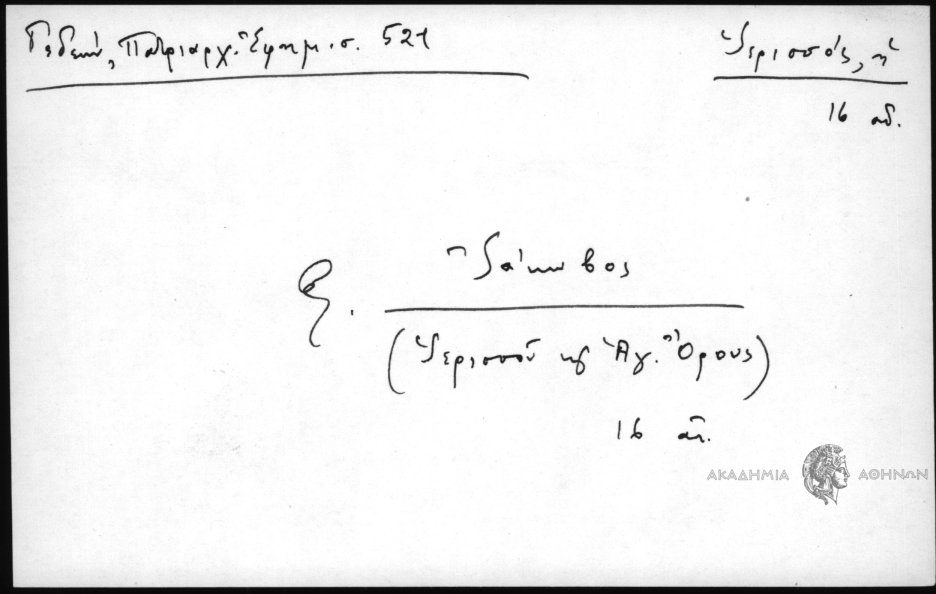 Γεδεών, Πατριαρχ. Ἐφημ. σ. 521
Ἱερισσός, ἡ
16 αἰ.
Ἰάκωβος
(Ἱερισσοῦ κ Ἁγ. Ὄρους)
16 αἰ.
ΑΚΑΔΗΜΙΑ ΑΘΗΝΩΝ